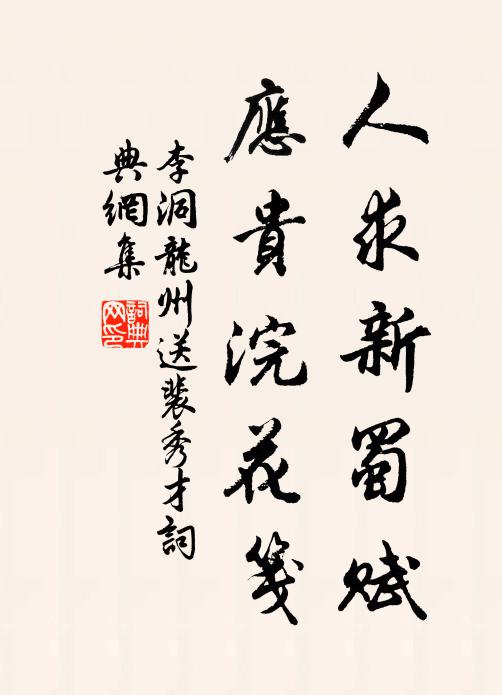 人求新蜀賦
應貴浣花箋
李洞龍州送裴秀才詞
典網集
詞典網印